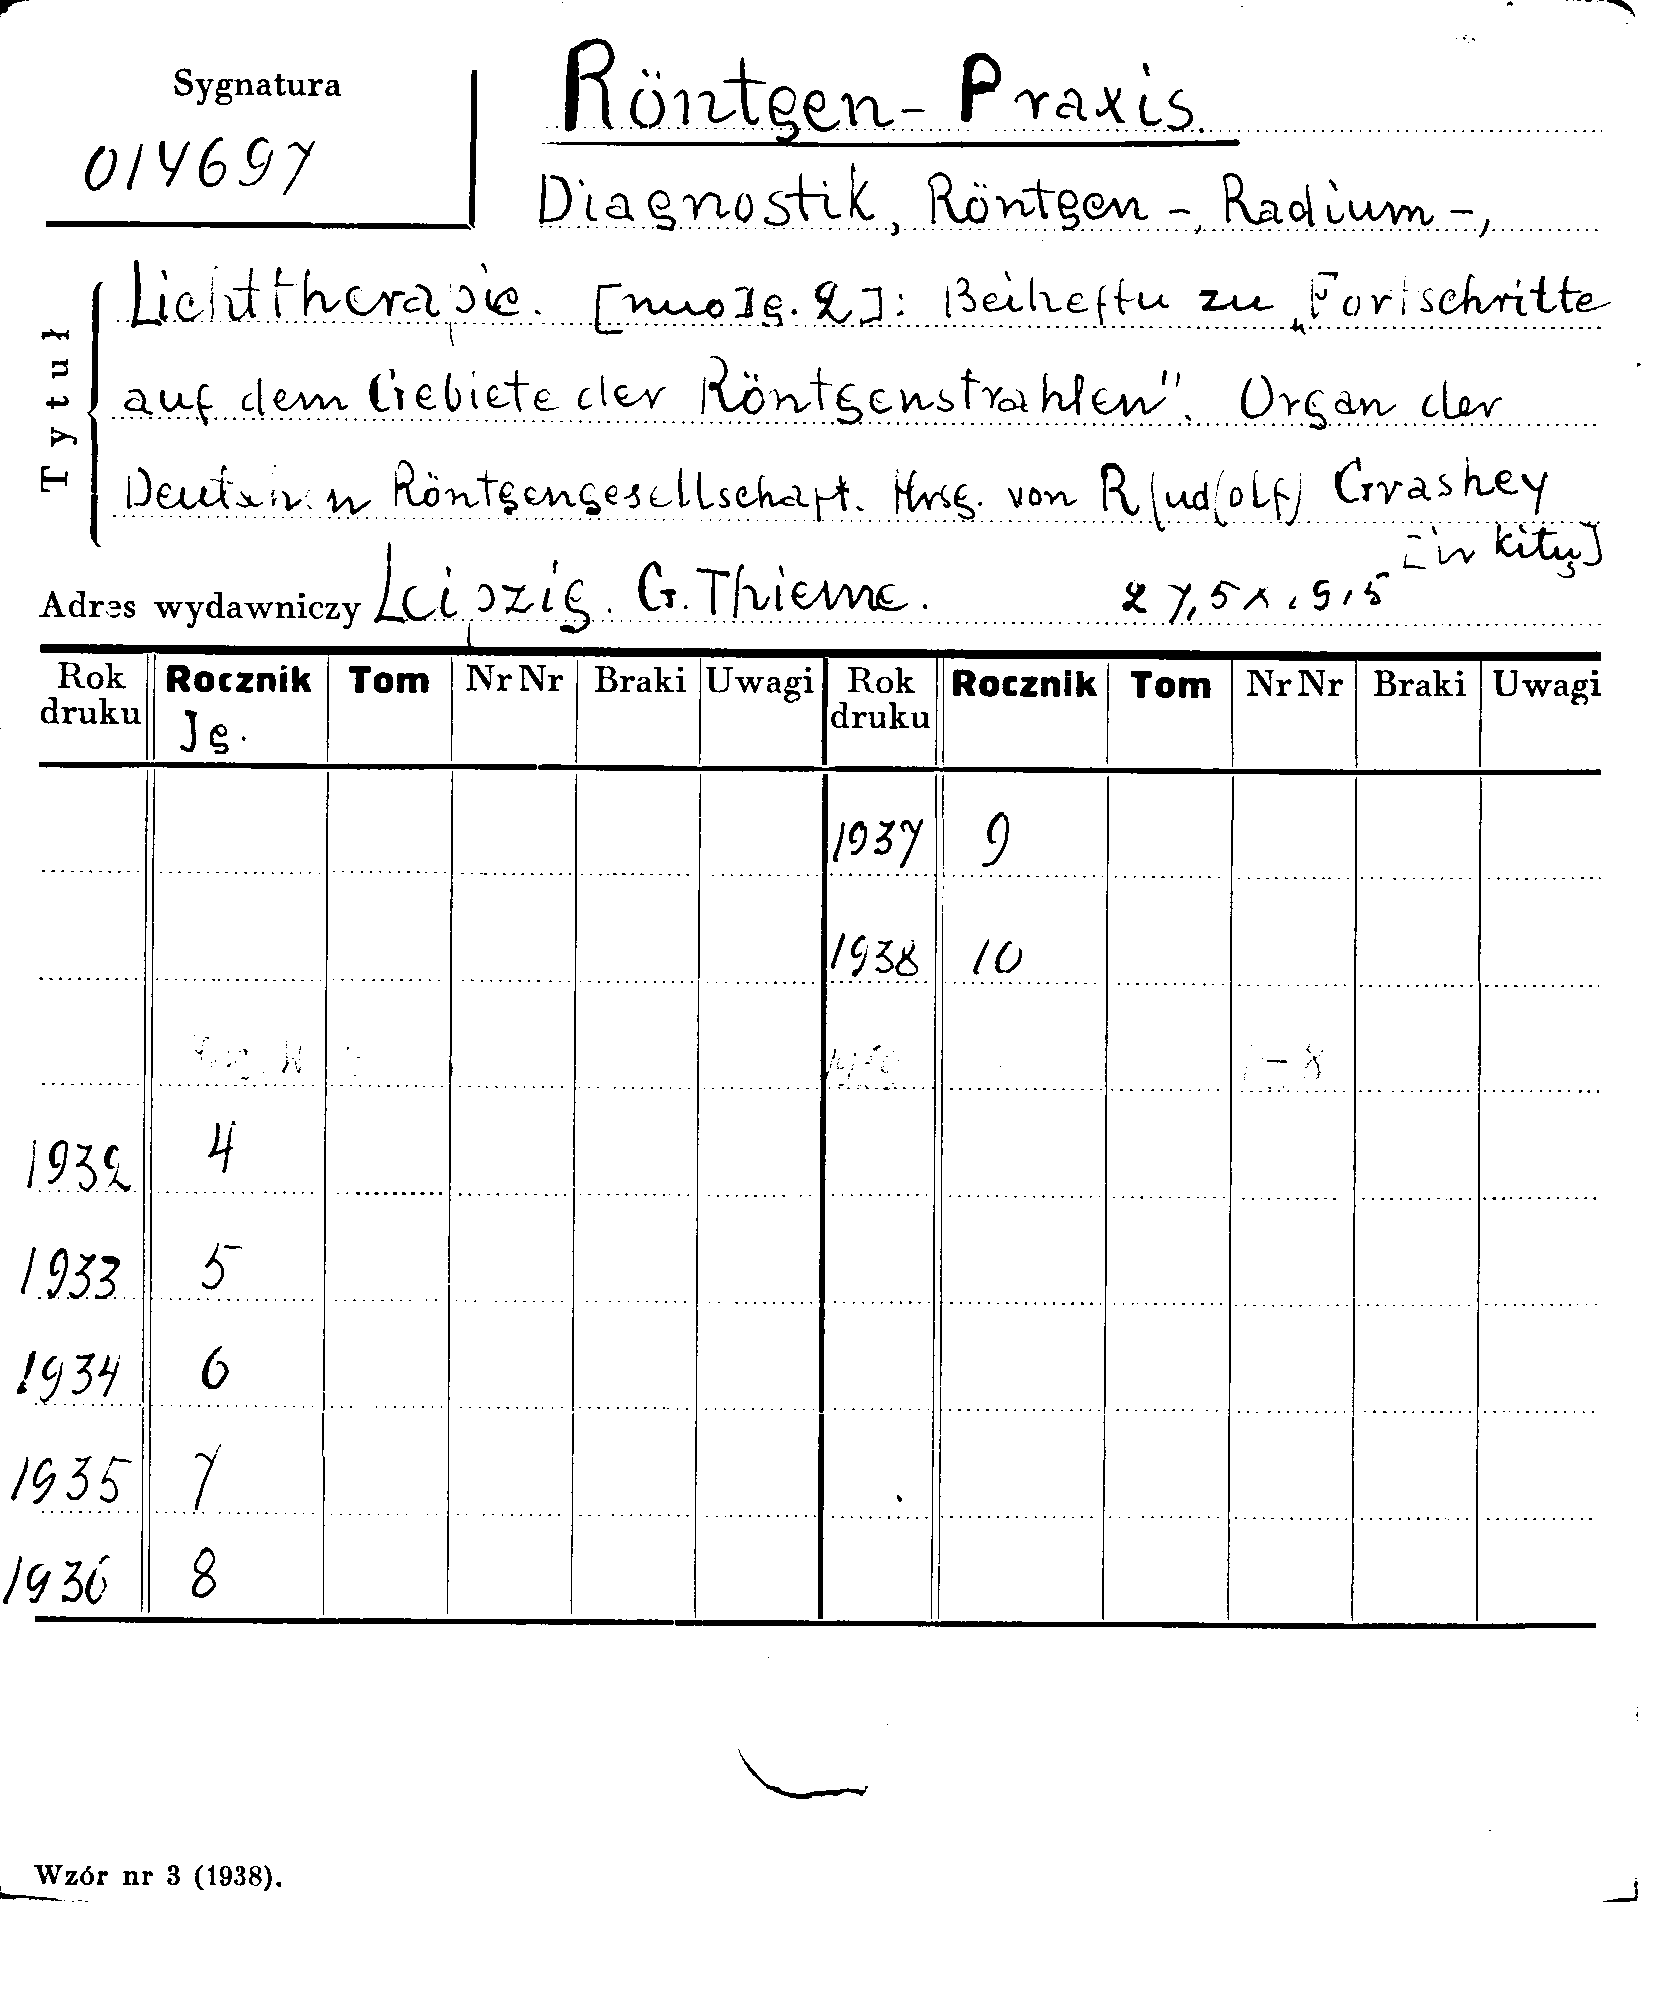 Sygnatura
014697
Röntgen-Praxis.
Diagnostik, Röntgen-, Radium-,
Tytuł
Lichttherapie. [nuo Jg. 2]: Beihefte zu „Fortschritte
auf dem Gebiete der Röntgenstrahlen". Organ der
Deutschen Röntgengesellschaft. Hrsg. von R(udolf) Grashey
[ir kitų]
Adres wydawniczy Leipzig. G. Thieme. 27,5x19,5
Rok druku Rocznik Tom Nr Nr Braki Uwagi Rok druku Rocznik Tom Nr Nr Braki Uwagi
Jg.
1937 9
1938 10
1932 4
1933 5
1934 6
1935 7
1936 8
Wzór nr 3 (1938).